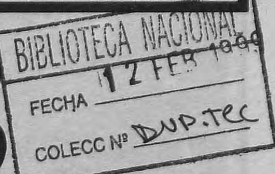 BIBLIOTECA NACIONAL
12 FEB
FECHA
COLECC Nº DUP.TEC